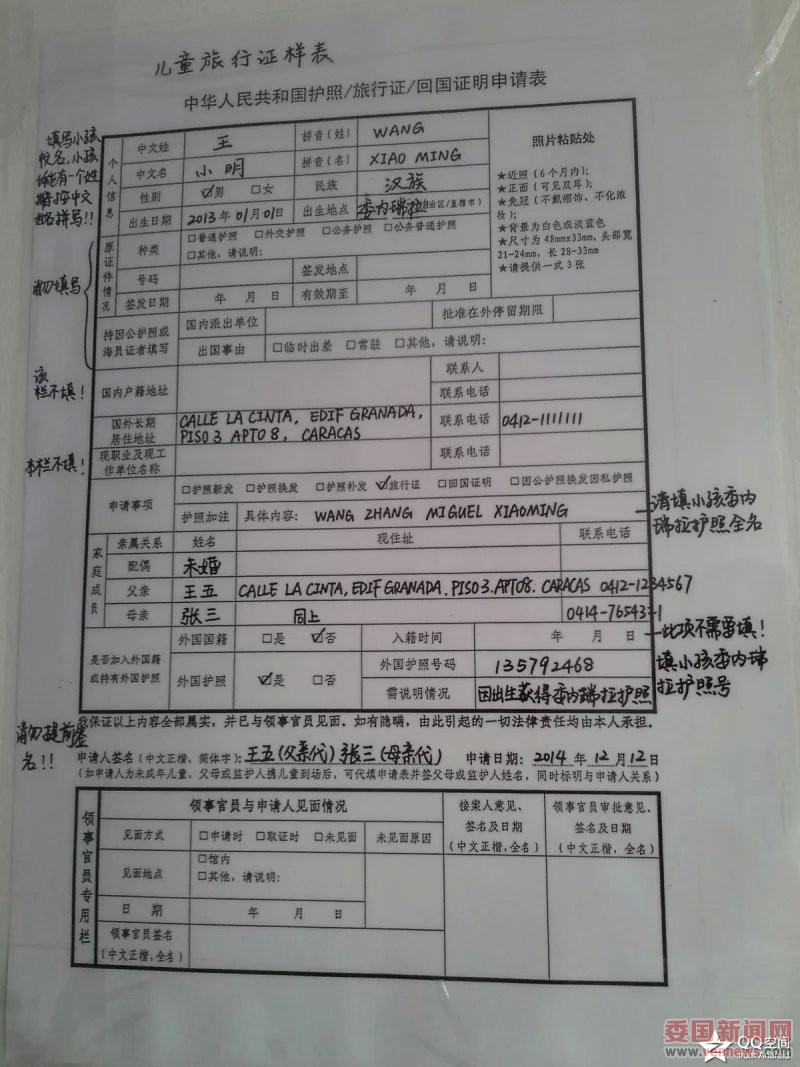 儿童旅行证样表
中华人民共和国护照/旅行证/回国证明申请表
填写小孩
姓名,小孩
只能有一个姓
请按中文
姓名拼写!!
个人信息
中文姓 王 拼音(姓) WANG
中文名 小明 拼音(名) XIAO MING
性别 ☑男 □女 民族 汉族
出生日期 2013年01月01日 出生地点 委内瑞拉 自治区/直辖市)
照片粘贴处
★近照(6个月内);
★正面(可见双耳);
★免冠(不戴帽饰、不化浓
妆);
★背景为白色或淡蓝色
★尺寸为48mmx33mm,头部宽
21-24mm,长28-33mm
★请提供一式3张
请勿填写
原证件情况
种类 □普通护照 □外交护照 □公务护照 □公务普通护照
□其他,请说明:
号码 签发地点
签发日期 年 月 日 有效期至 年 月 日
持因公护照或
海员证者填写
国内派出单位 批准在外停留期限
出国事由 □临时出差 □常驻 □其他,请说明:
该
栏不填!
国内户籍地址 联系人
联系电话
国外长期
居住地址
CALLE LA CINTA, EDIF GRANADA,
PISO 3 APTO 8, CARACAS
联系电话 0412-1111111
本栏不填!
现职业及现工
作单位名称
联系电话
申请事项 □护照新发 □护照换发 □护照补发 ☑旅行证 □回国证明 □因公护照换发因私护照
护照加注 具体内容: WANG ZHANG MIGUEL XIAOMING
请填小孩委内
瑞拉护照全名
家庭成员
亲属关系 姓名 现住址 联系电话
配偶 未婚
父亲 王五 CALLE LA CINTA, EDIF GRANADA. PISO 3. APTO8. CARACAS 0412-1234567
母亲 张三 同上 0414-7654321
是否加入外国籍
或持有外国护照
外国国籍 □是 ☑否 入籍时间 年 月 日
此项不需要填!
外国护照 ☑是 □否 外国护照号码 135792468
需说明情况 因出生获得委内瑞拉护照
填小孩委内瑞
拉护照号
我保证以上内容全部属实,并已与领事官员见面。如有隐瞒,由此引起的一切法律责任均由本人承担。
请勿提前签
名!!
申请人签名(中文正楷,简体字): 王五(父亲代) 张三(母亲代) 申请日期: 2014年12月12日
(如申请人为未成年儿童,父母或监护人携儿童到场后,可代填申请表并签父母或监护人姓名,同时标明与申请人关系)
领事官员专用栏
领事官员与申请人见面情况
见面方式 □申请时 □取证时 □未见面 未见面原因
见面地点 □馆内
□其他,请说明:
日 期 年 月 日
领事官员签名
(中文正楷,全名)
接案人意见、
签名及日期
(中文正楷,全名)
领事官员审批意见、
签名及日期
(中文正楷,全名)
委国新闻网
www.vennews.com
QQ空间
from Android